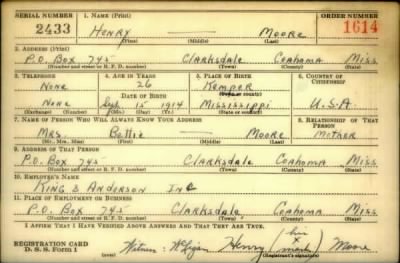 SERIAL NUMBER 1. NAME (Print) ORDER NUMBER
2433 HENRY MOORE 1614
(First) (Middle) (Last)
2. ADDRESS (Print)
P.O. Box 745 Clarksdale Coahoma Miss.
(Number and street or R. F. D. number) (Town) (County) (State)
3. TELEPHONE 4. AGE IN YEARS 5. PLACE OF BIRTH 6. COUNTRY OF CITIZENSHIP
None 26 Kemper
DATE OF BIRTH (Town or county)
None Sept 15 1914 Mississippi U.S.A.
(Exchange) (Number) (Mo.) (Day) (Yr.) (State or country)
7. NAME OF PERSON WHO WILL ALWAYS KNOW YOUR ADDRESS 8. RELATIONSHIP OF THAT PERSON
Mrs. Bettie Moore Mother
(Mr., Mrs., Miss) (First) (Middle) (Last)
9. ADDRESS OF THAT PERSON
P.O. Box 745 Clarksdale Coahoma Miss.
(Number and street or R. F. D. number) (Town) (County) (State)
10. EMPLOYER'S NAME
KING & Anderson Inc
11. PLACE OF EMPLOYMENT OR BUSINESS
P.O. Box 745 Clarksdale Coahoma Miss.
(Number and street or R. F. D. number) (Town) (County) (State)
I AFFIRM THAT I HAVE VERIFIED ABOVE ANSWERS AND THAT THEY ARE TRUE.
REGISTRATION CARD
D. S. S. Form 1 Witness: Henry (his X mark) Moore
(Registrant's signature)